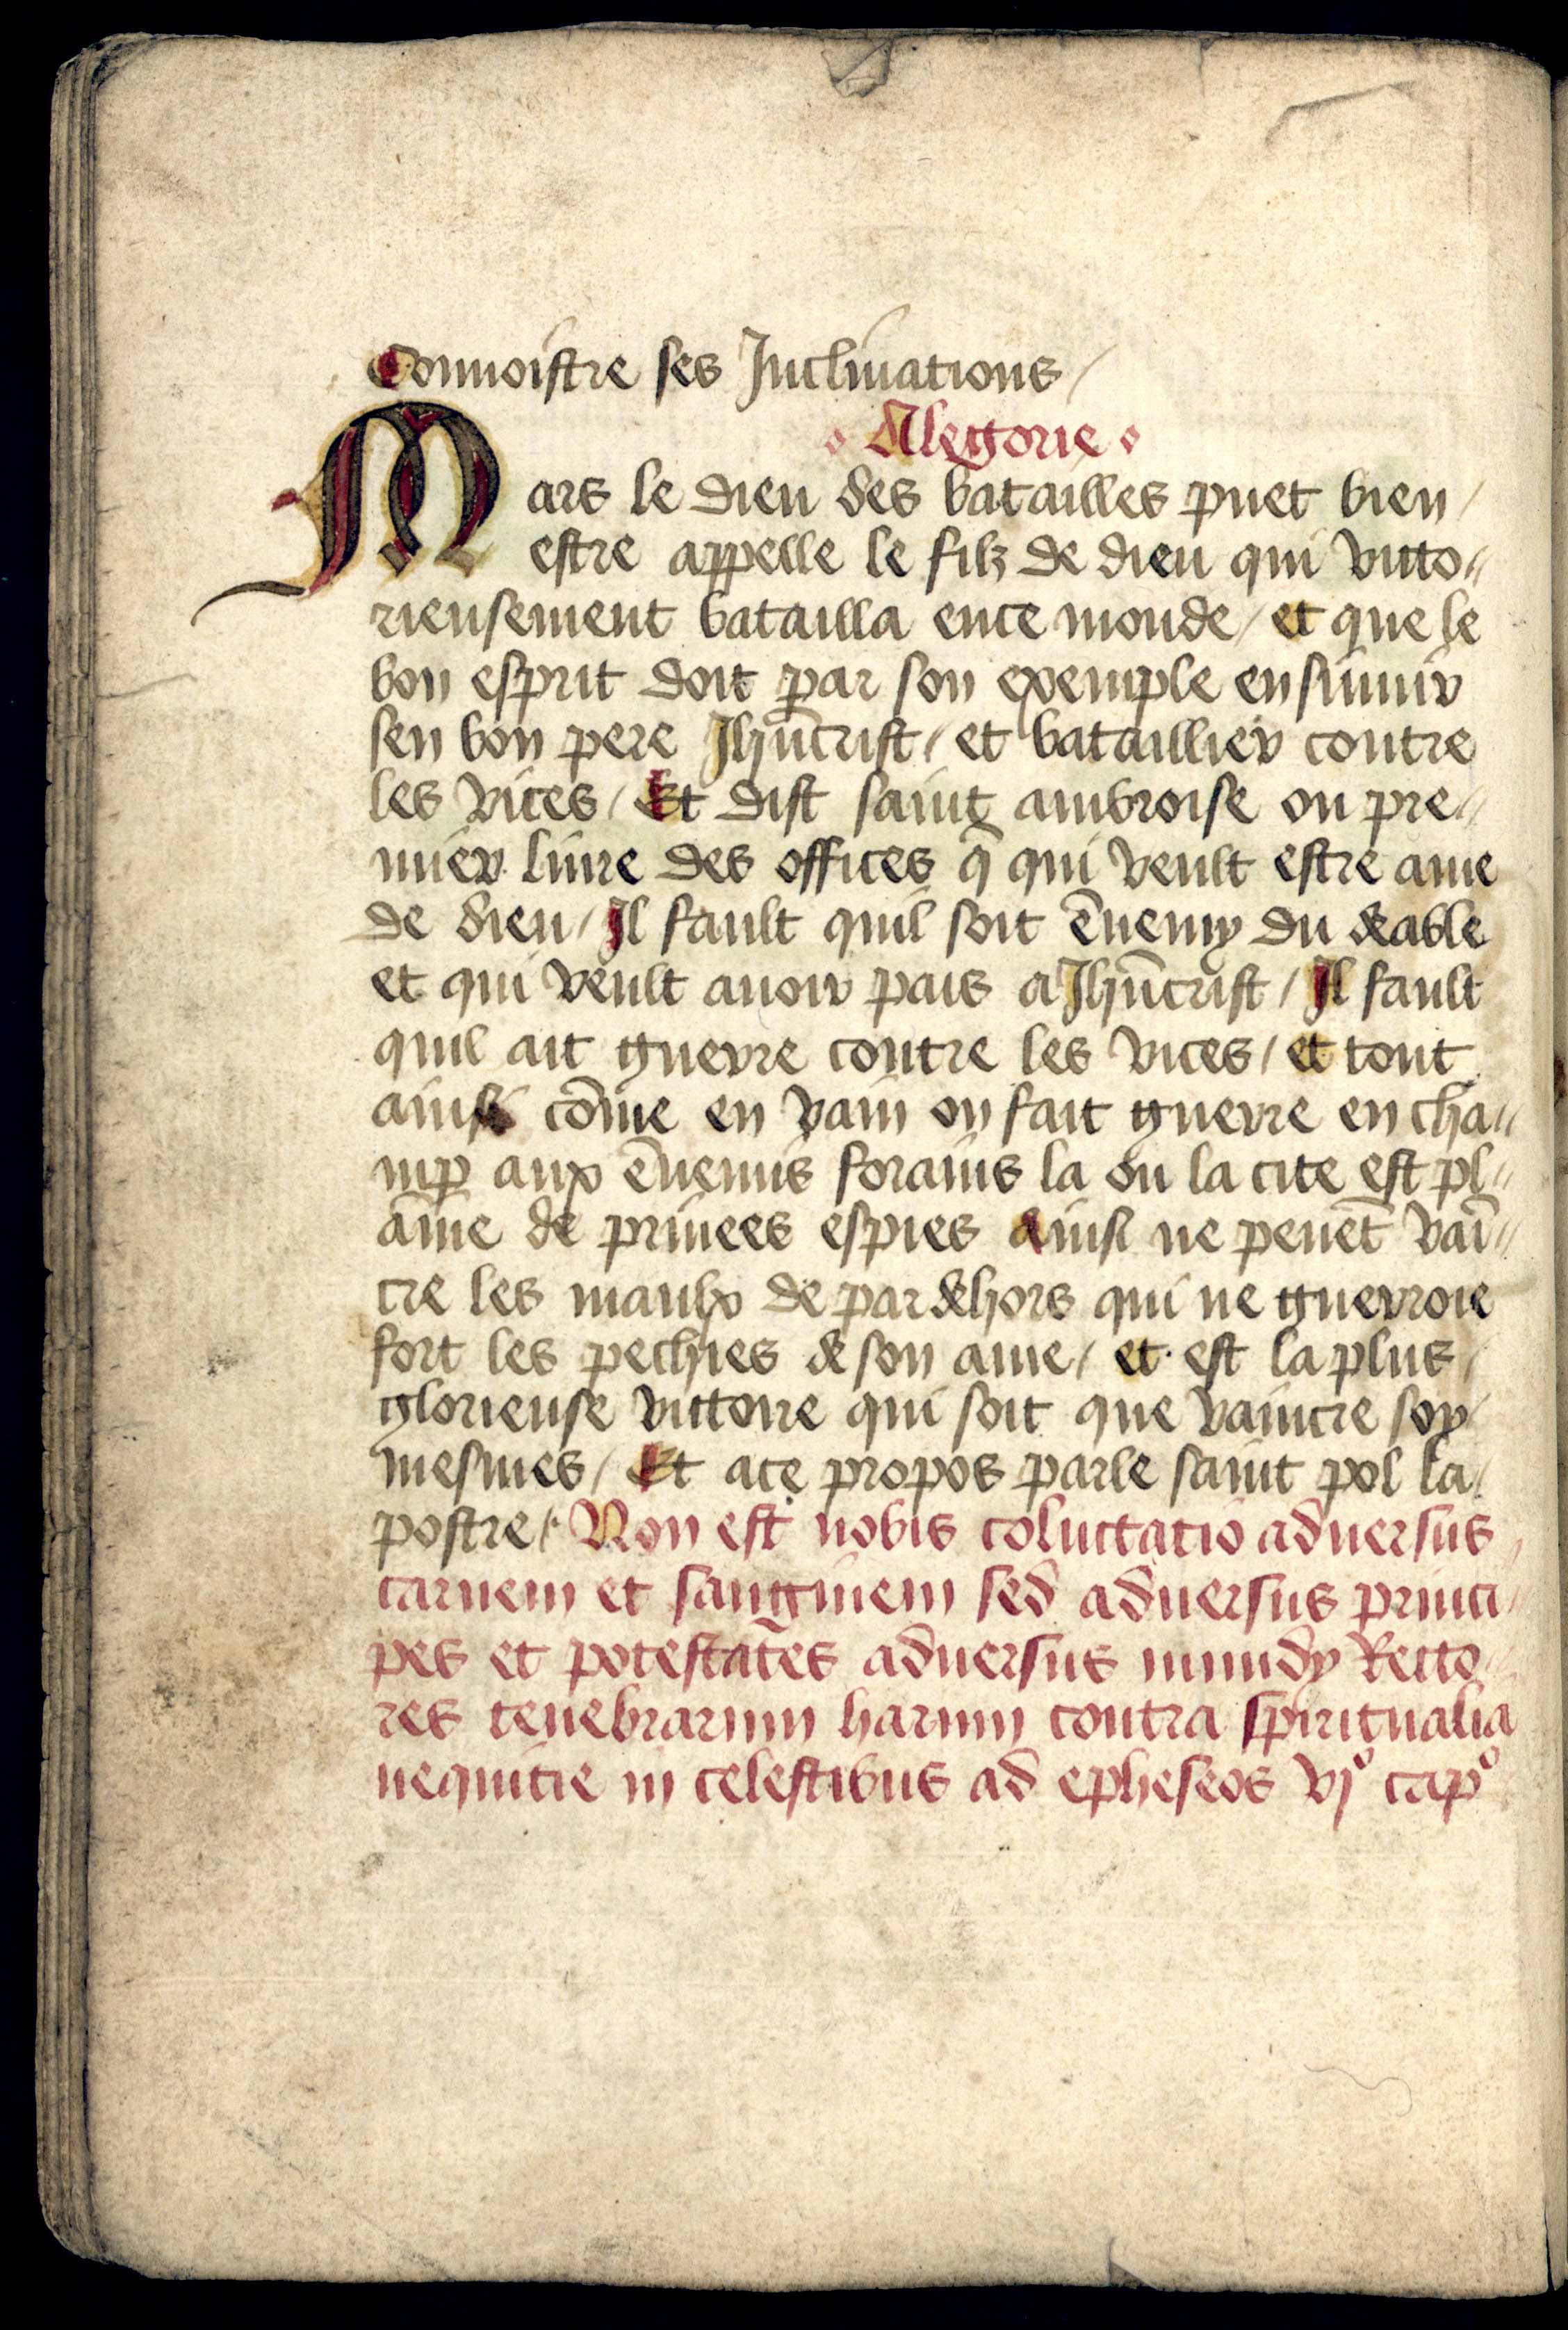 Connoistre ses Inclinations /
Alegorie
Mars le dieu des batailles puet bien /
estre appelle le filz de dieu qui victo-
rieusement batailla ence monde / et que le
bon esprit doit par son exemple ensuiuir
sen bon pere Jhūcrist / et bataillier contre
les vices / Et dist saint ambroise ou pre-
mier liure des offices q̄ qui veult estre ame
de dieu / Il fault quil soit ēnemy du deable
et qui veult auoir pais a Jhūcrist / Il fault
quil ait guerre contre les vices / et tout
ainsi cōme en vain on fait guerre en cha-
mp aux ēnemis forains la ou la cite est pl-
āine de priuees espies Ainsi ne peuēt vaī-
cre les maulx de par dehors qui ne guerroie
fort les pechies de son ame / et est la plus /
glorieuse victoire qui soit que vaincre soy /
mesmes / Et ace propos parle saint pol la /
postre / Non est nobis coluctatio aduersus
carnem et sanguinem sed aduersus princi-
pes et potestates aduersus mundy Recto-
res tenebrarum harum contra spiritualia
nequitie in celestibus ad epheseos vjº capº